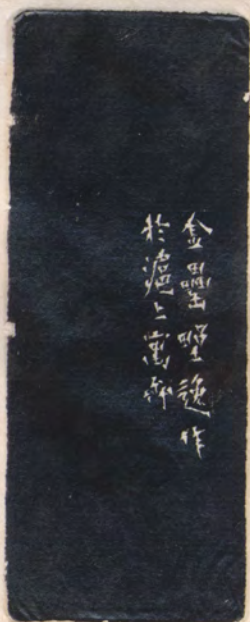 金罍野逸作
於滬上寓